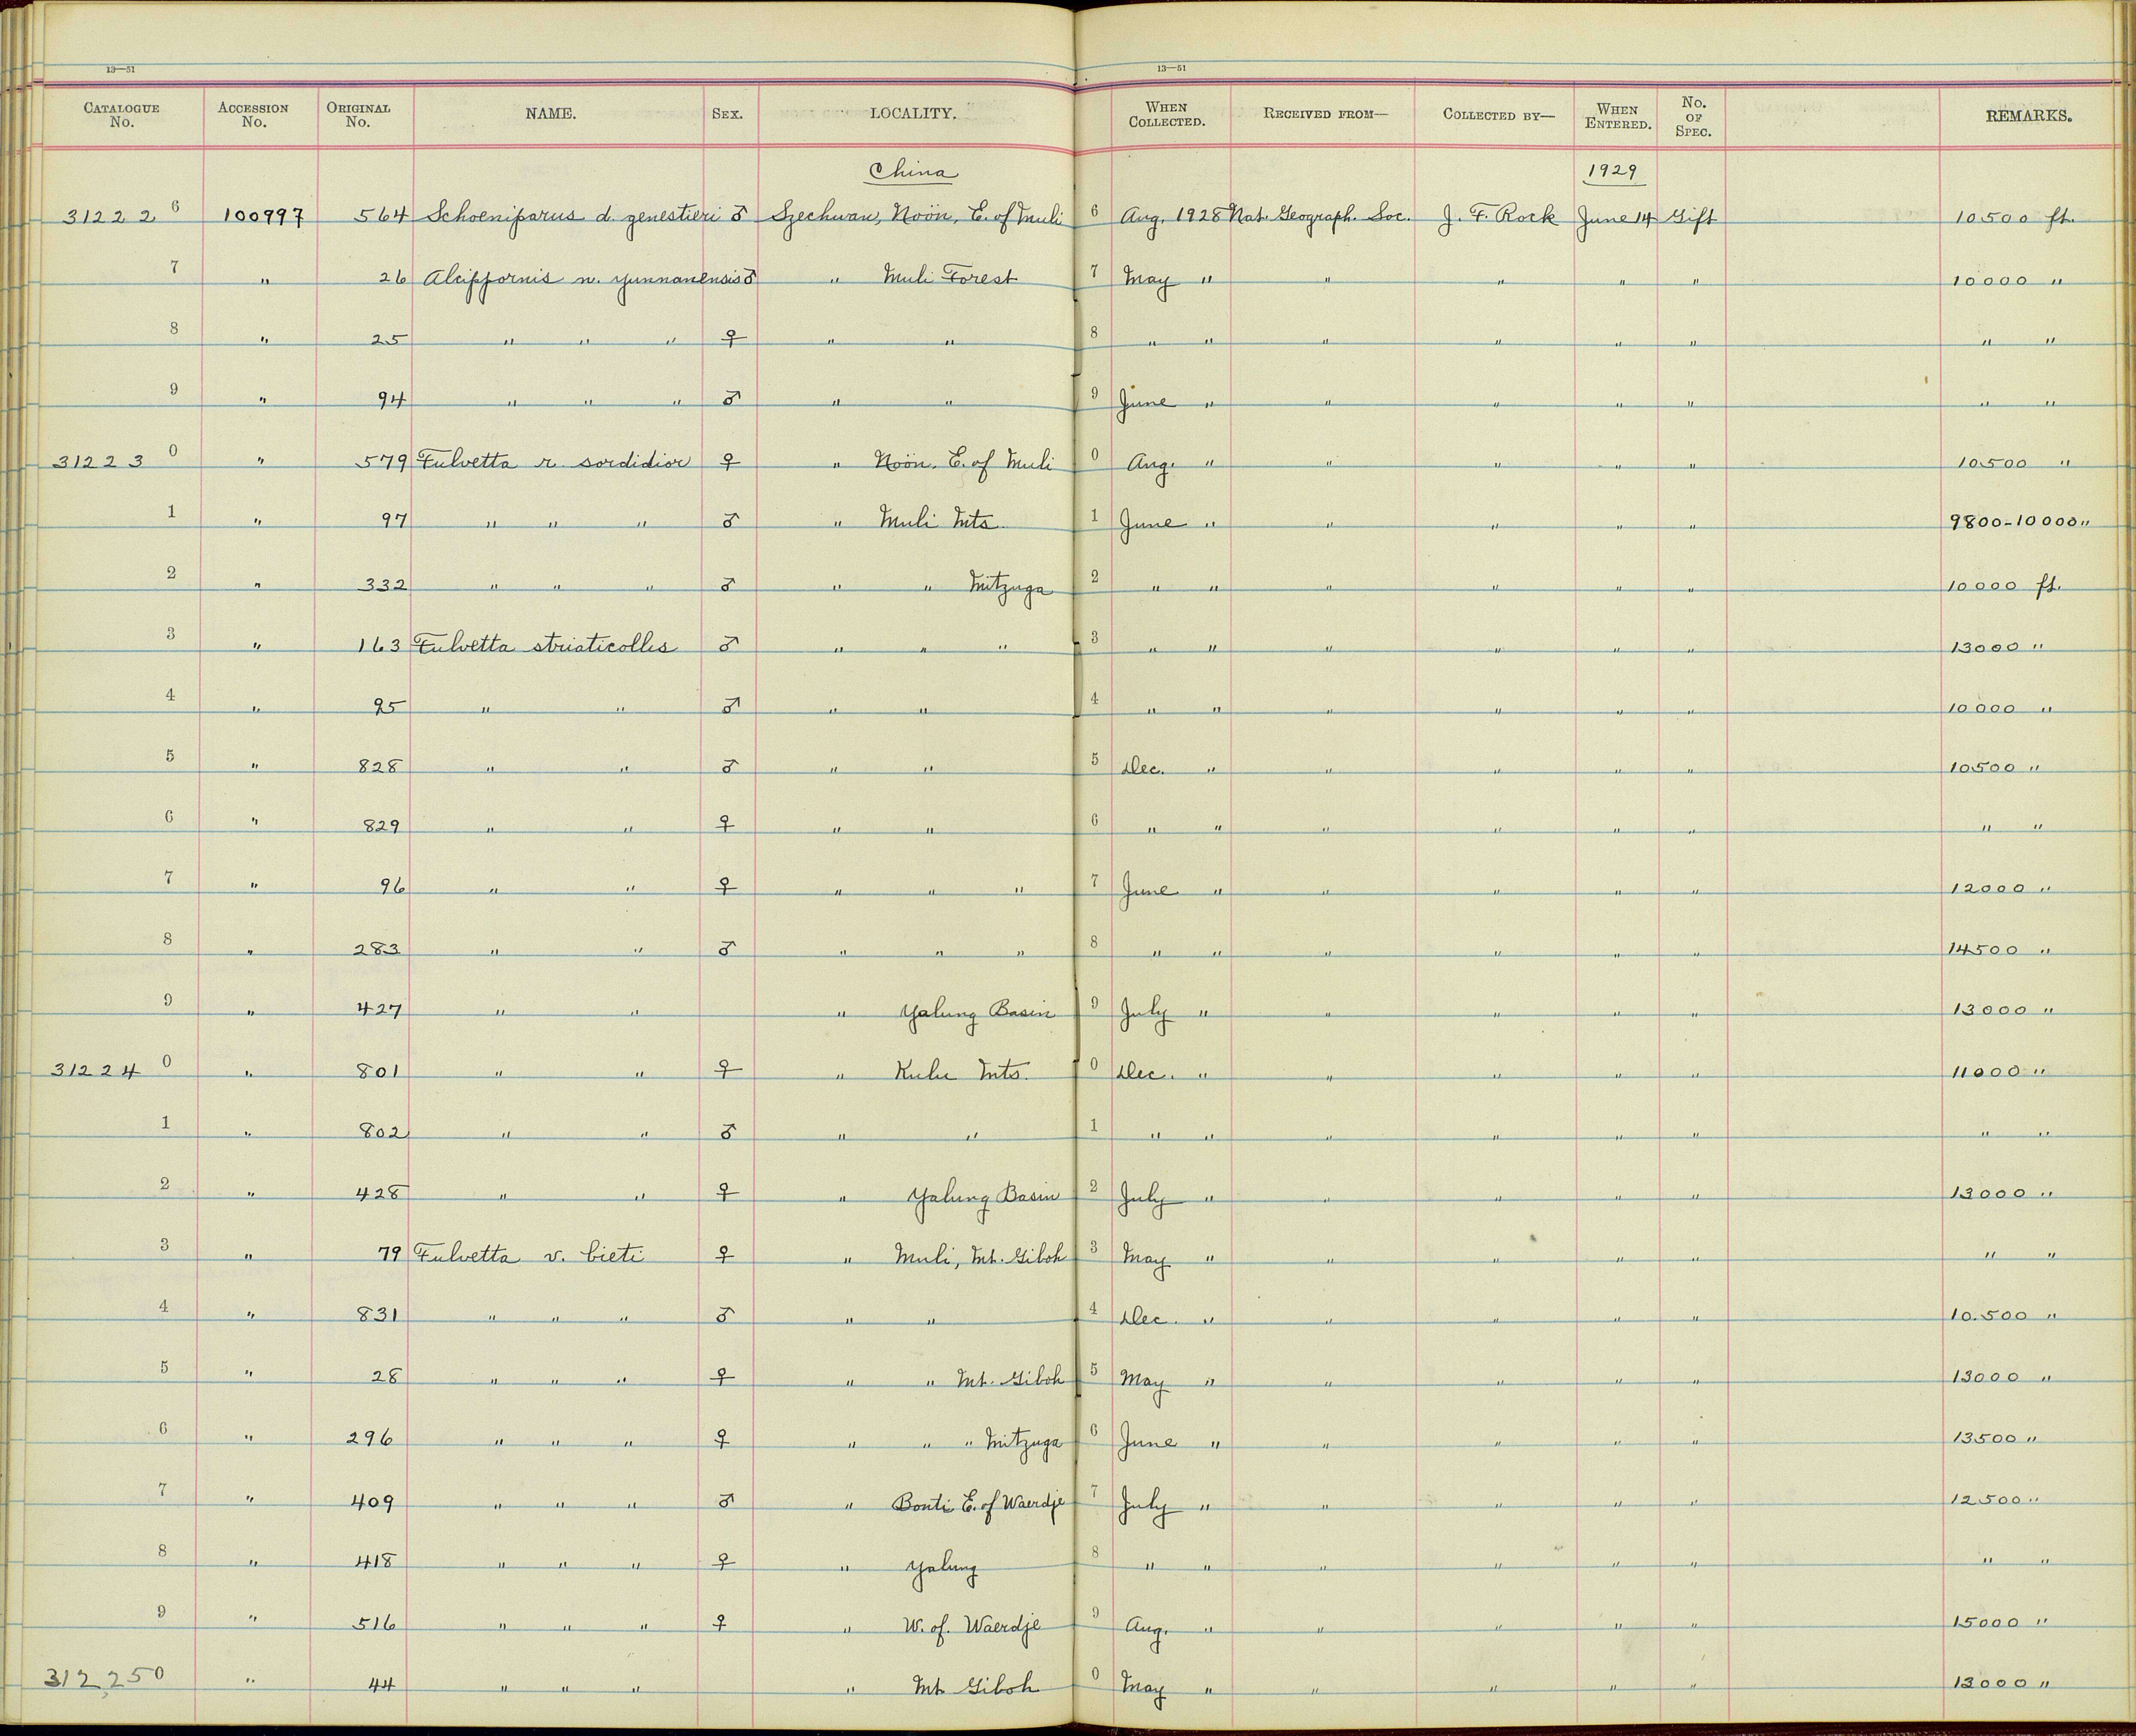 13—51 13—51
CATALOGUE No. ACCESSION No. ORIGINAL No. NAME. SEX. LOCALITY. WHEN COLLECTED. RECEIVED FROM— COLLECTED BY— WHEN ENTERED. No. OF SPEC. REMARKS.
China 1929
31222 6 100997 564 Schoeniparus d. genestieri ♂ Szechwan, Noön, E. of Muli 6 Aug. 1928 Nat. Geograph. Soc. J. F. Rock June 14 Gift 10500 ft.
7 " 26 Alcippornis n. yunnanensis ♂ " Muli Forest 7 May " " " " " 10000 "
8 " 25 " " " ♀ " " 8 " " " " " " " "
9 " 94 " " " ♂ " " 9 June " " " " " " "
31223 0 " 579 Fulvetta r. sordidior ♀ " Noön, E. of Muli 0 Aug. " " " " " 10500 "
1 " 97 " " " ♂ " Muli Mts. 1 June " " " " " 9800-10000 "
2 " 332 " " " ♂ " " Mitzuga 2 " " " " " " 10000 ft.
3 " 163 Fulvetta striaticollis ♂ " " " 3 " " " " " " 13000 "
4 " 95 " " ♂ " " 4 " " " " " " 10000 "
5 " 828 " " ♂ " " 5 Dec. " " " " " 10500 "
6 " 829 " " ♀ " " 6 " " " " " " " "
7 " 96 " " ♀ " " " 7 June " " " " " 12000 "
8 " 283 " " ♂ " " " 8 " " " " " " 14500 "
9 " 427 " " " Yalung Basin 9 July " " " " " 13000 "
31224 0 " 801 " " ♀ " Kulu Mts. 0 Dec. " " " " " 11000 "
1 " 802 " " ♂ " " 1 " " " " " " " "
2 " 428 " " ♀ " Yalung Basin 2 July " " " " " 13000 "
3 " 79 Fulvetta v. bieti ♀ " Muli, Mt. Giboh 3 May " " " " " " "
4 " 831 " " " ♂ " " 4 Dec. " " " " " 10.500 "
5 " 28 " " " ♀ " " Mt. Giboh 5 May " " " " " 13000 "
6 " 296 " " " ♀ " " " Mitzuga 6 June " " " " " 13500 "
7 " 409 " " " ♂ " Bonti E. of Waerdje 7 July " " " " " 12500 "
8 " 418 " " " ♀ " Yalung 8 " " " " " " " "
9 " 516 " " " ♀ " W. of. Waerdje 9 Aug. " " " " " 15000 "
312,25 0 " 44 " " " " Mt. Giboh 0 May " " " " " 13000 "